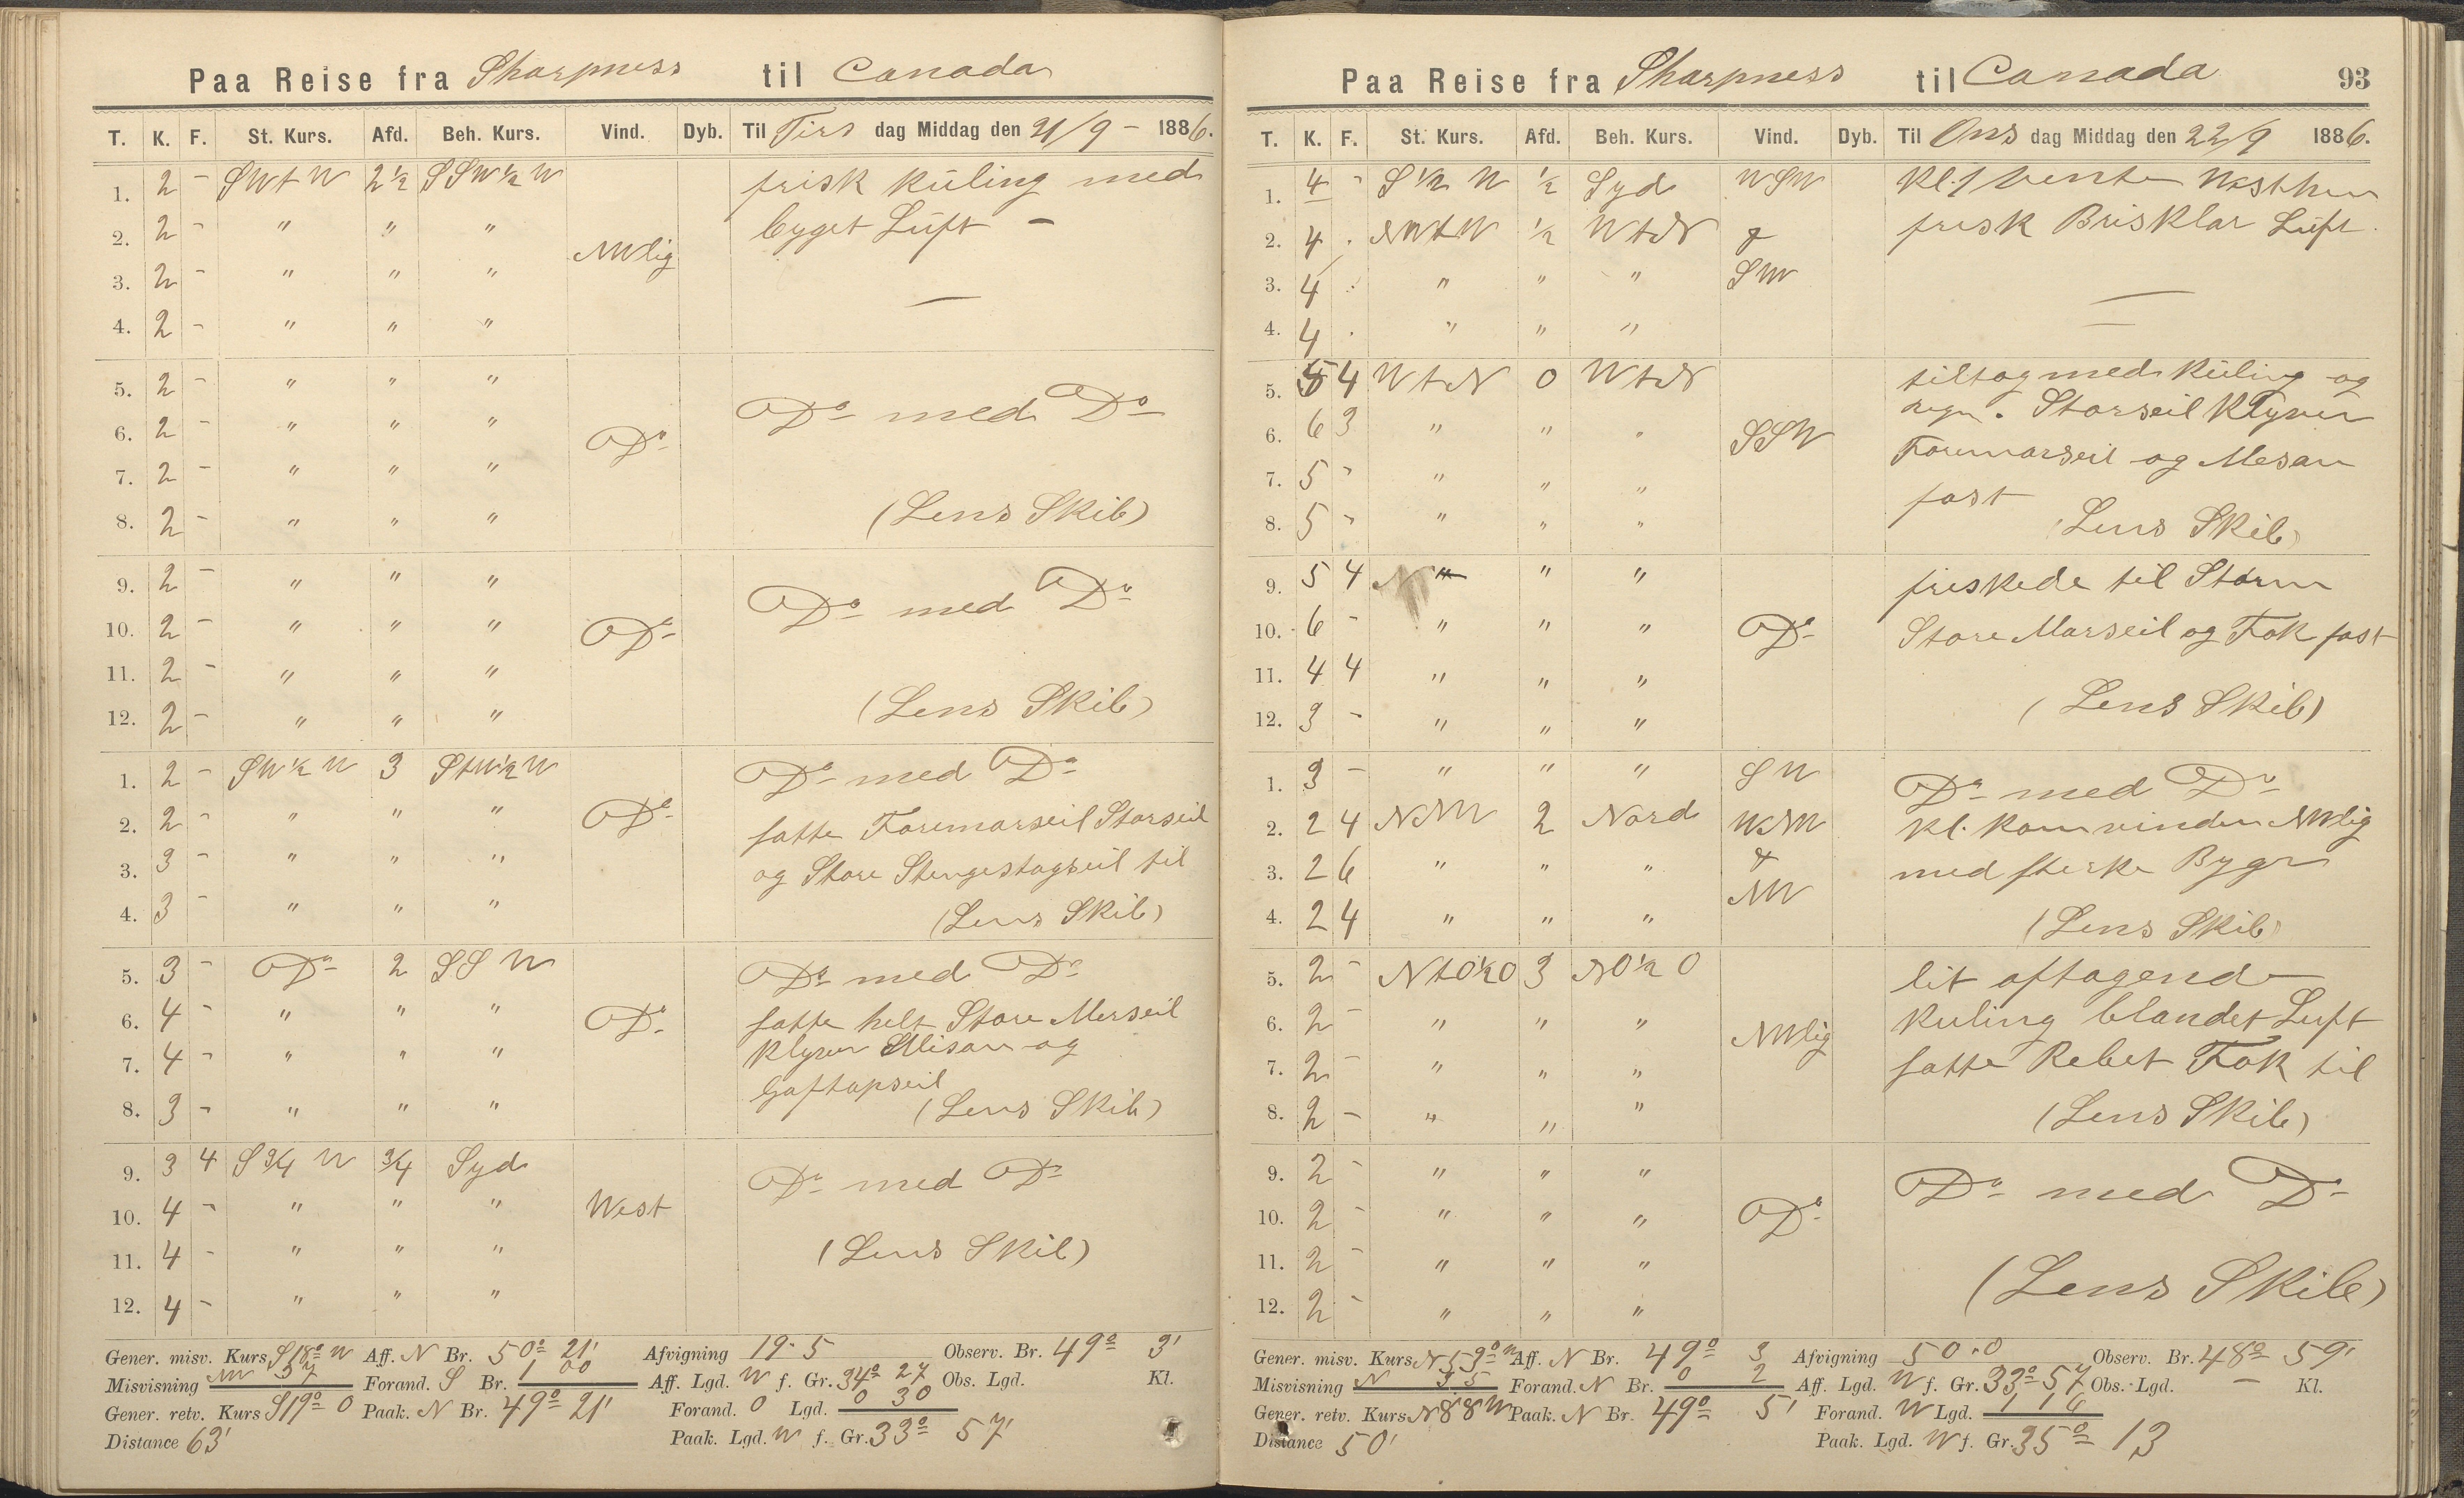 Paa Reise fra Sharpness til Canada
T. K. F. St. Kurs. Afd. Beh. Kurs. Vind. Dyb. Til Tirs dag Middag den 21/9 - 1886.
1. 2 - SWtW 2½ SSW½W frisk Küling med
2. 2 - " " " byget Lüft -
NWlig
3. 2 - " " "
4. 2 - " " "
5. 2 - " " "
Do med Do
6. 2 - " " " Do
7. 2 - " " "
8. 2 - " " " (Lens Skib)
9. 2 - " " "
Do med Do
10. 2 - " " " Do
11. 2 - " " "
12. 2 - " " " (Lens Skib)
1. 2 - SW½W 3 StW½W Do med Do
2. 2 - " " " Do satte Foremarseil Storseil
3. 3 - " " " og Store Stengestagseil til
4. 3 - " " " (Lens Skib)
5. 3 - Do 2 SSW Do med Do
6. 4 - " " " Do satte helt Store Merseil
7. 4 - " " " Klyver Misan og
Gaftopseil
8. 3 - " " " (Lens Skib)
9. 3 4 S¾W ¾ Syd Do med Do
10. 4 - " " " West
11. 4 - " " " (Lens Skib)
12. 4 - " " "
Gener. misv. Kurs S18o W Aff. N Br. 50o 21' Afvigning 19.5 Observ. Br. 49o 3'
Misvisning NW 37 Forand. S Br. 1 00 Aff. Lgd. W f. Gr. 34o 27 Obs. Lgd. Kl.
Gener. retv. Kurs S19o O Paak. N Br. 49o 21' Forand. O Lgd. 0 30
Distance 63' Paak. Lgd. W f. Gr. 33o 57'
Paa Reise fra Sharpness til Canada 93
T. K. F. St. Kurs. Afd. Beh. Kurs. Vind. Dyb. Til Ons dag Middag den 22/9 1886.
1. 4 - S½W ½ Syd WSW Kl. 1 vente
2. 4 . NWtW ½ WtN & frisk Bris Klar Lüft.
3. 4 . " " " SW
4. 4 . " " "
5. 5 4 WtN 0 WtN tiltog med Küling og
6. 6 3 " " " SSW regn. Storseil Klyver
7. 5 - " " " Foremarseil og Mesan
fast
8. 5 - " " " (Lens Skib)
9. 5 4 N " " " friskede til Storm
10. 6 - " " " Do Store Marseil og Fok fast
11. 4 4 " " "
12. 3 - " " " (Lens Skib)
1. 3 - " " " SW Do med Do
2. 2 4 NNW 2 Nord WNW Kl. kom vinden NWlig
3. 2 6 " " " & med sterke Bygr
4. 2 4 " " " NW (Lens Skib)
5. 2 - NtO½O 3 NO½O lit aftagende
6. 2 - " " " NWlig Kuling blandet Luft
7. 2 - " " " satte Rebet Fok til
8. 2 - " " " (Lens Skib)
9. 2 - " " " Do med Do
10. 2 - " " " Do
11. 2 - " " "
12. 2 - " " " (Lens Skib)
Gener. misv. Kurs N53o W Aff. N Br. 49o 3 Afvigning 50.0 Observ. Br. 48o 59'
Misvisning N 35 Forand. N Br. 0 2 Aff. Lgd. W f. Gr. 33o 57 Obs. Lgd. - Kl.
Gener. retv. Kurs N88W Paak. N Br. 49o 5' Forand. W Lgd. 1 16
Distance 50' Paak. Lgd. W f. Gr. 35o 13